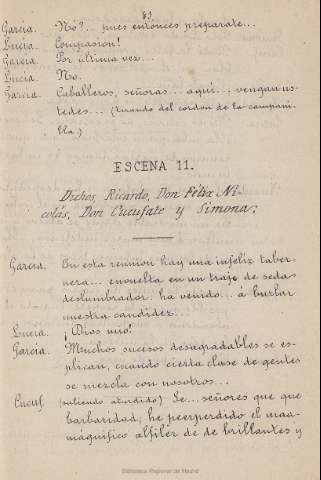 83
García. No?.. pues entonces preparate...
Lucía. Compasion!
García. Por última vez...
Lucía. No.
García. Caballeros, señoras... aquí... vengan us-
tedes... (tirando del cordon de la campani-
lla.)
ESCENA 11.
Dichos, Ricardo, Don Félix Ni-
colás, Don Cucufate y Simona.
García. En esta reunion hay una infeliz taber-
nera... envuelta en un traje de sedas
deslumbrador: ha venido... á burlar
nuestra candidez.
Lucía. ¡Dios mio!
García. Muchos sucesos desagradables se es-
plican, cuando cierta clase de gentes
se mezcla con nosotros...
Cucuf. (saliendo aturdido) Se... señores que que
barbaridad; he peerperdido el maa-
máquífico alfiler de de brillantes y
Biblioteca Regional de Madrid